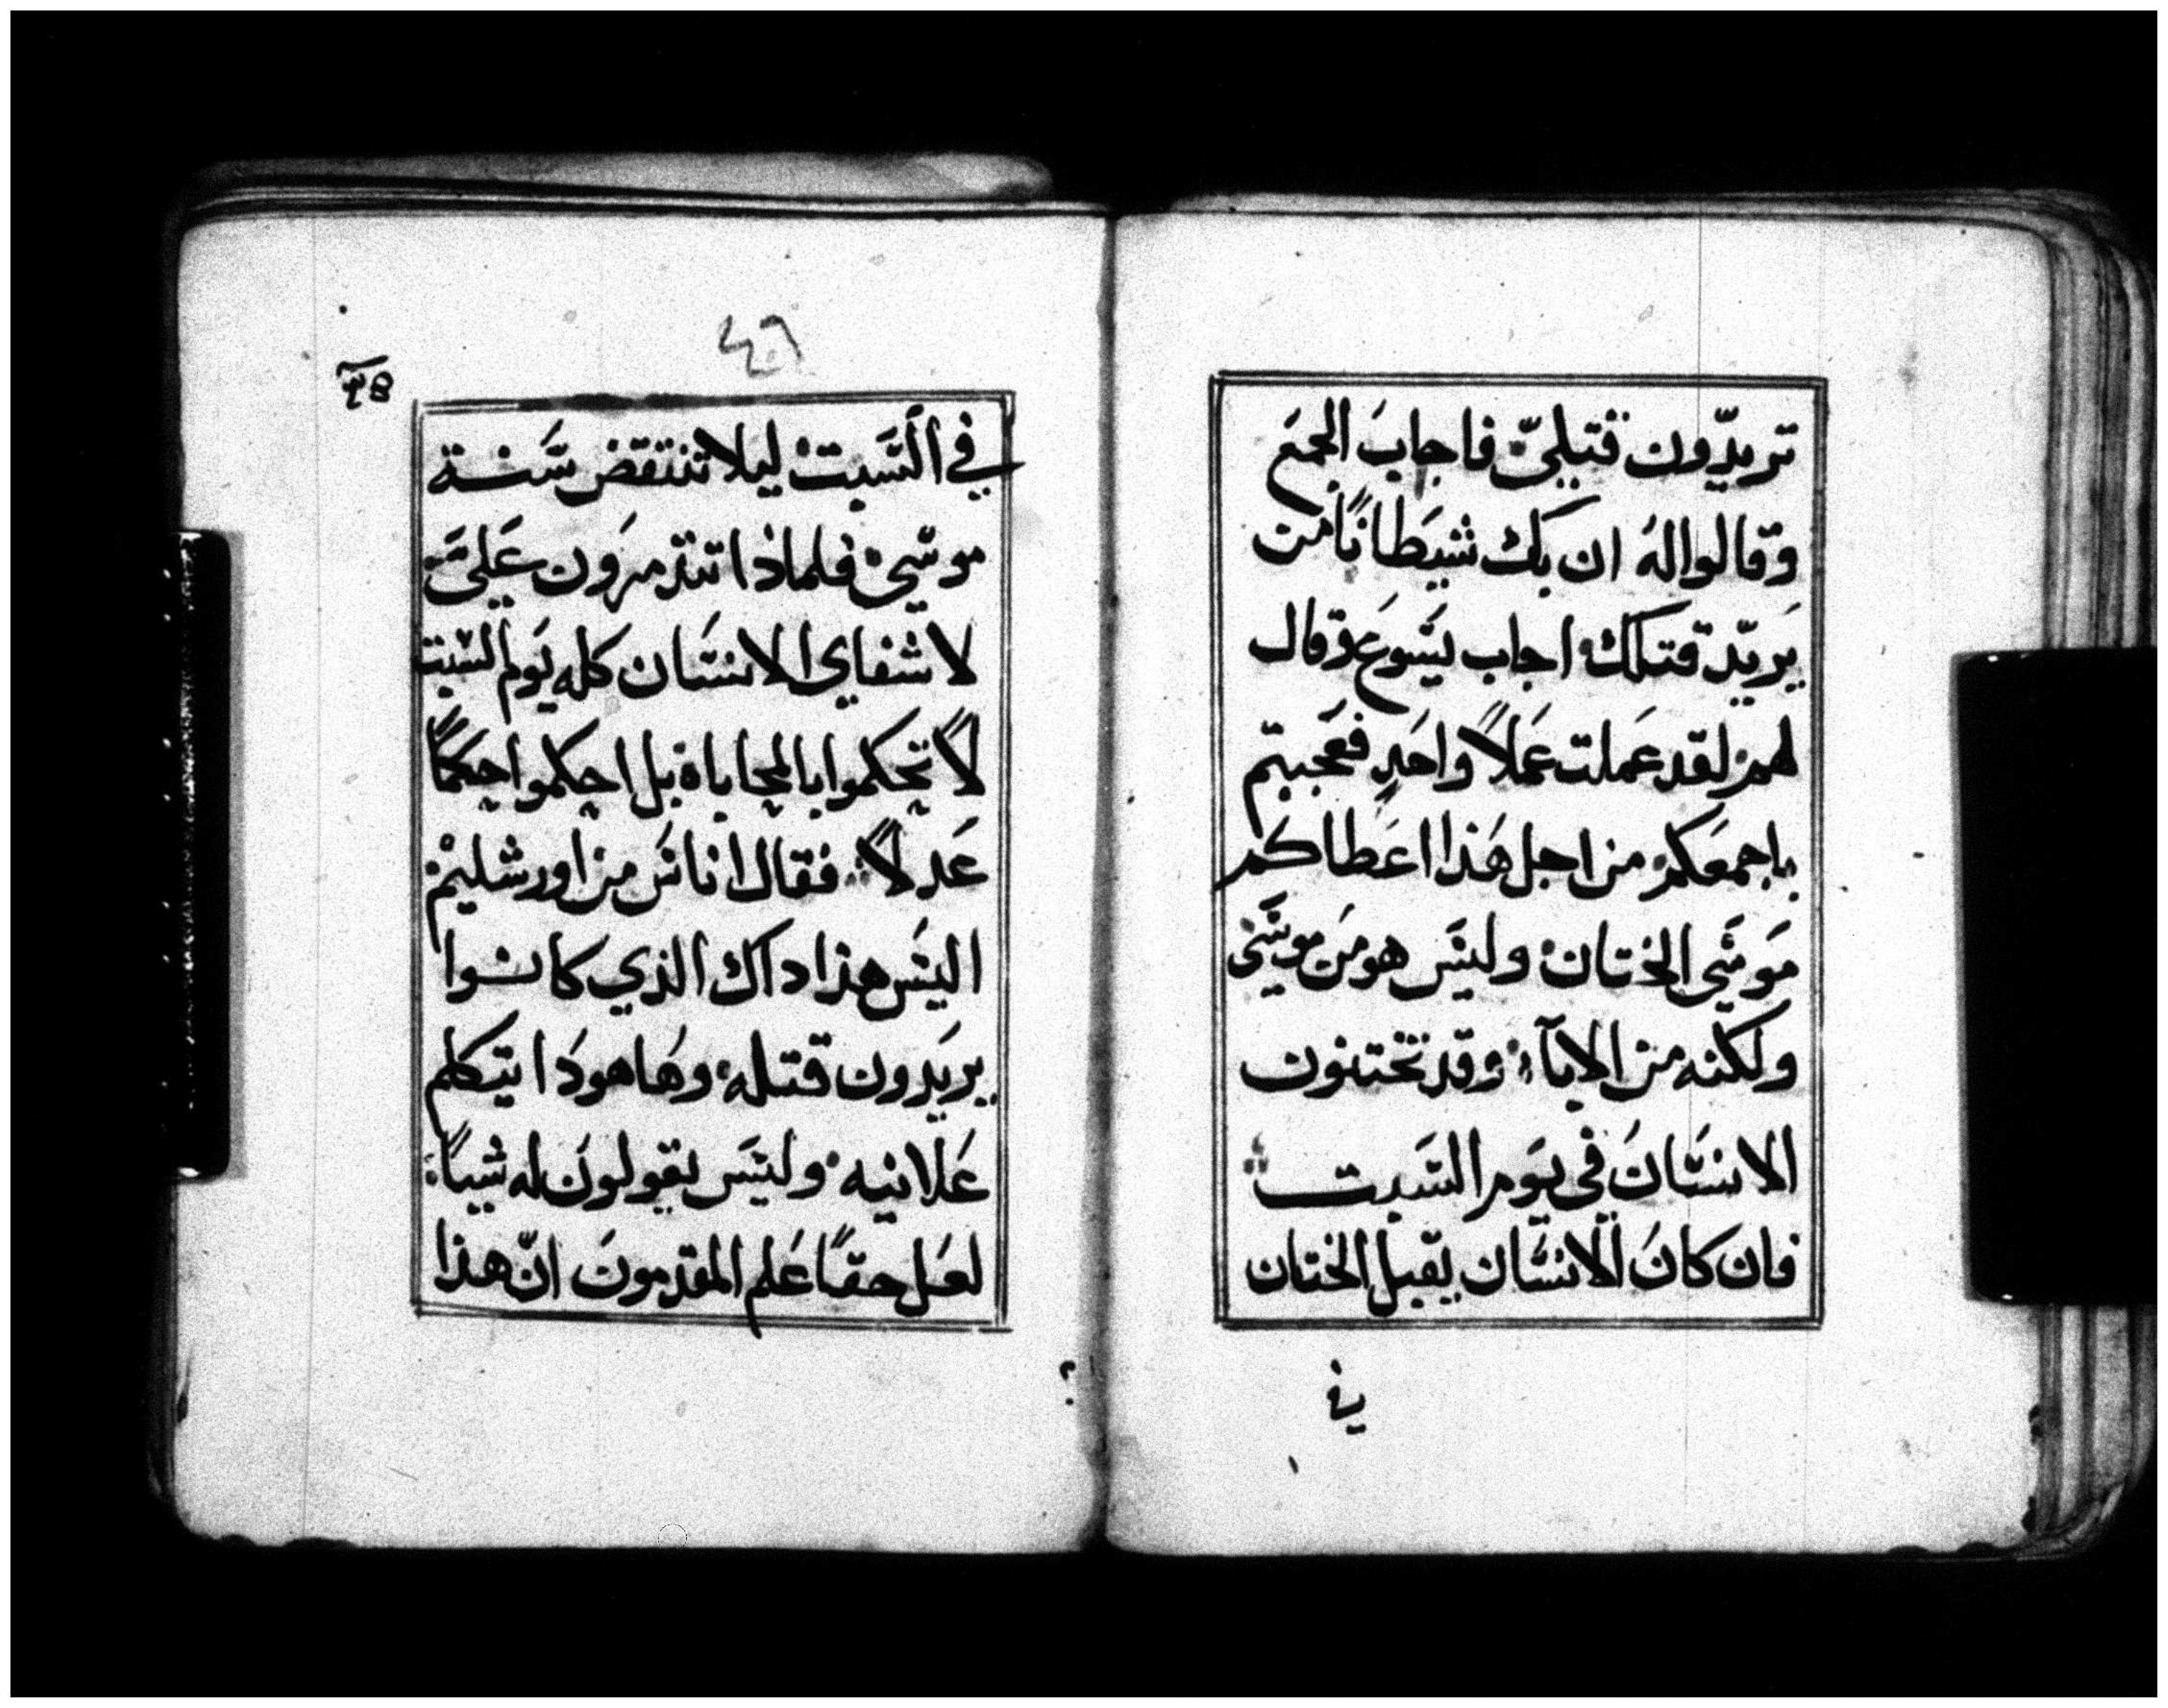 تريدون قتلي فاجاب الجمع
وقالوا له ان بك شيطانا من
يريد قتلك اجاب يسوع وقال
لهم لقد عملت عملاً واحد فعجبتم
باجمعكم من اجل هذا اعطاكم
موسى الختان وليس هو من موسى
ولكنه من الاباء وقد تختنون
الانسان في يوم السبت
فان كان الانسان يقبل الختان
في
٤٦
في السبت ليلا تنتقض سنة
موسى فلماذا تتذمرون علي
لاشفاي الانسان كله يوم السبت
لا تحكموا بالمحاباة بل احكموا حكماً
عدلاً فقال اناس من اورشليم
اليس هذا داك الذي كانوا
يريدون قتله وها هودا يتكلم
علانيه وليس يقولون له شياً
لعل حقاً علم المقدمون انّ هذا